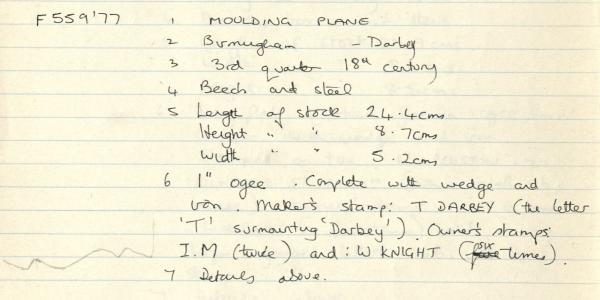 F559'77 1 MOULDING PLANE
2 Birmingham - Darbey
3 3rd quarter 18th century
4 Beech and steel
5 Length of stock 24.4cms
Height " " 8.7cms
Width " " 5.2cms
6 1" ogee. Complete with wedge and
iron. Maker's stamp: T DARBEY (the letter
'T' surmounting 'Darbey'). Owner's stamps:
I.M (twice) and: W KNIGHT (six times).
7 Details above.